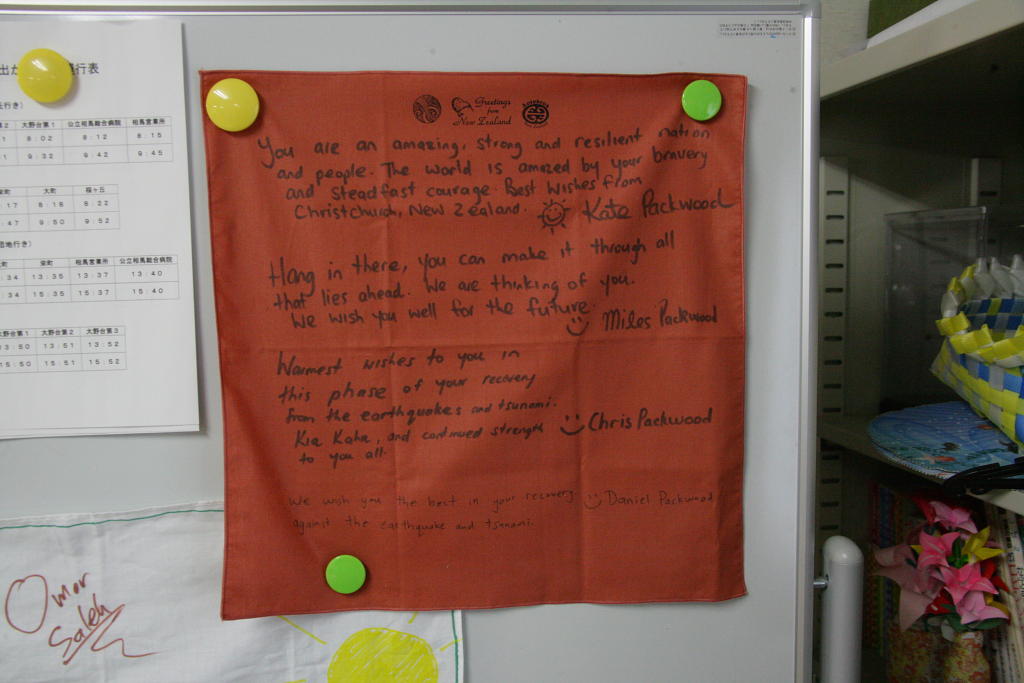 行表
大野台第1 公立相馬総合病院 相馬営業所
8:02 8:12 8:15
9:32 9:42 9:45
大町 桜ヶ丘
:17 8:18 8:22
:47 9:50 9:52
栄町 相馬営業所 公立相馬総合病院
:34 13:35 13:37 13:40
:34 15:35 15:37 15:40
大野台第1 大野台第2 大野台第3
13:50 13:51 13:52
15:50 15:51 15:52
Greetings
from
New Zealand
You are an amazing, strong and resilient nation
and people. The world is amazed by your bravery
and steadfast courage. Best Wishes from
Christchurch, New Zealand. Kate Packwood
Hang in there, you can make it through all
that lies ahead. We are thinking of you.
We wish you well for the future. Miles Packwood
Warmest wishes to you in
this phase of your recovery
from the earthquakes and tsunami.
Kia Kaha, and continued strength
to you all. Chris Packwood
We wish you the best in your recovery Daniel Packwood
against the earthquake and tsunami.
Omar
Saleh